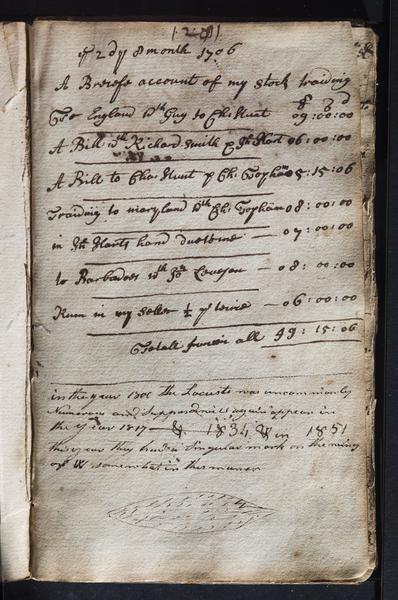 ye 2 dy 8 month 1706
A Breefe account of my stock traiding
To England wth Guy to Ch: Hunt 09:00:00
A Bill wth Richard Smith p Jth Hart 06:00:00
A Bill to Cha: Hunt p Ch: Tophām 05:15:06
Traiding to maryland wth Ch: Tophām 08:00:00
in Jth Harts hand due to me — 07:00:00
to Barbadoes wth Jno — 08:00:00
Rum in my seller — 06:00:00
Totall in all 49:15:06
in the year 1800 the Locusts was uncommonly
Numerous and supposed will again appear in
the year 1817 — & 1834 & in 1851
this year they had a Singular mark on the wing
of W somewhat in this manner